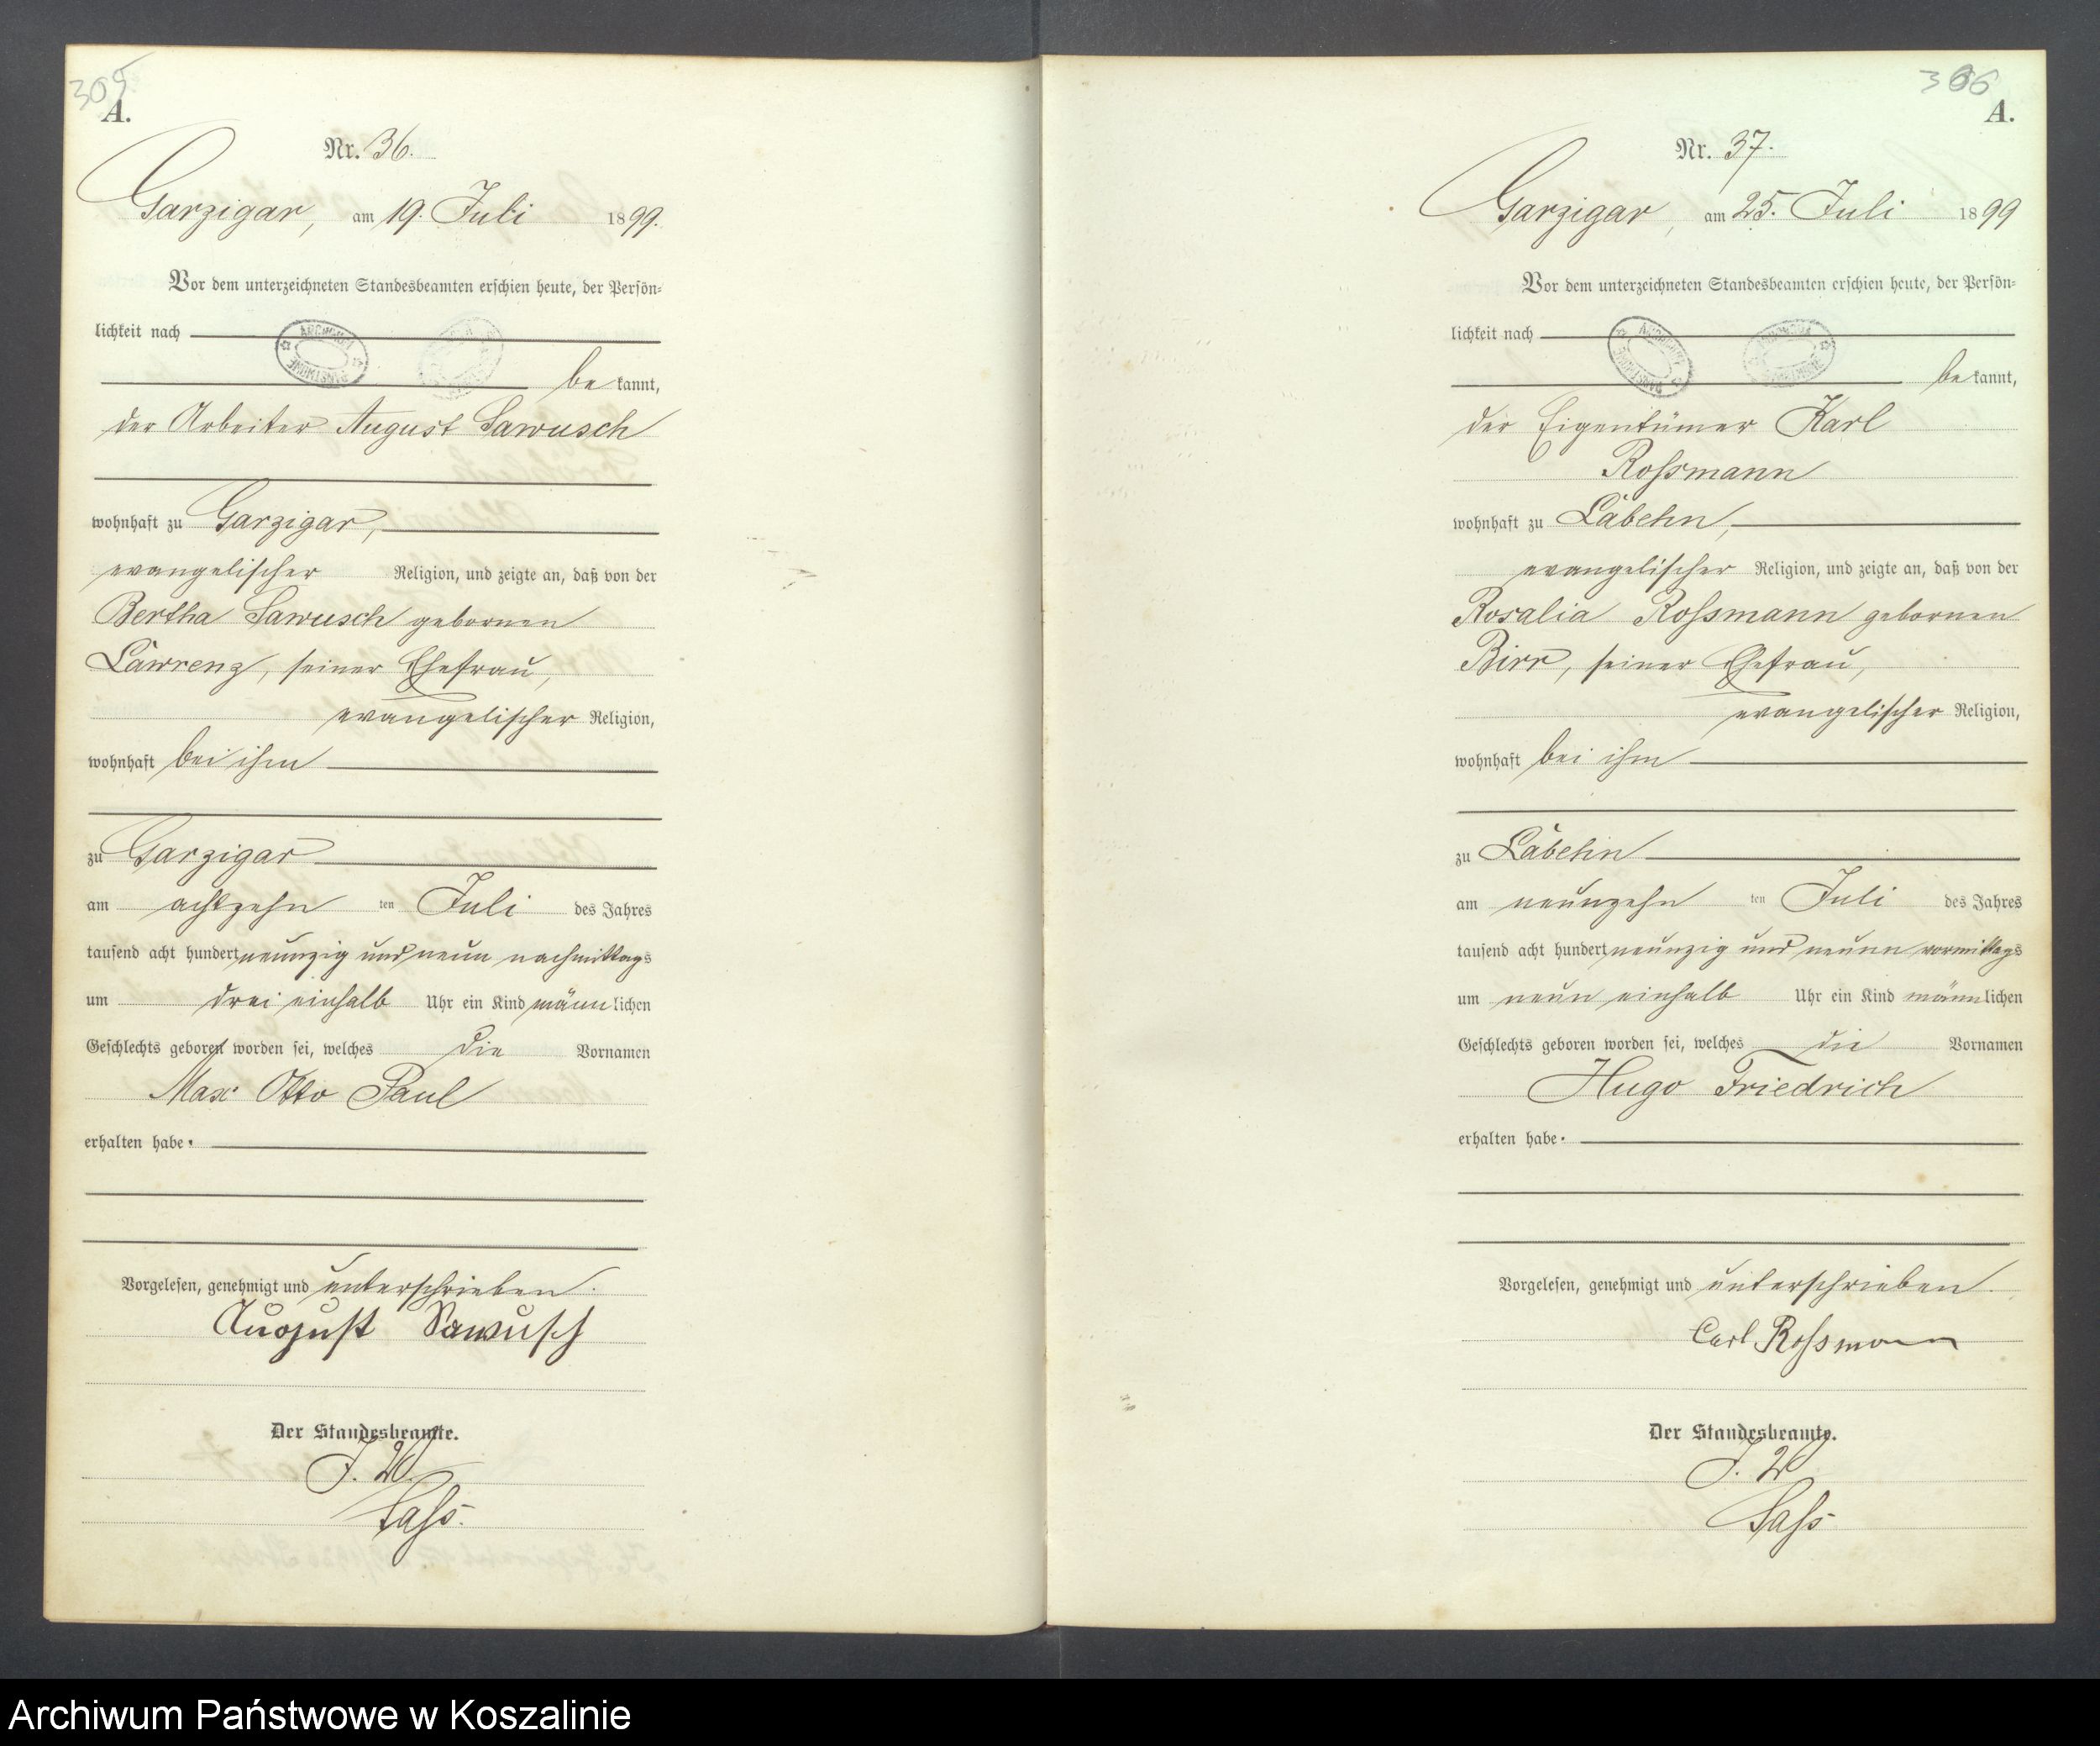 305
A.
Nr. 36.
Garzigar, am 19. Juli 1899.
Vor dem unterzeichneten Standesbeamten erschien heute, der Persön-
lichkeit nach
be kannt,
der Arbeiter August Sawusch
wohnhaft zu Garzigar,
evangelischer Religion, und zeigte an, daß von der
Bertha Sawusch gebornen
Lawrenz, seiner Ehefrau,
evangelischer Religion,
wohnhaft bei ihm
zu Garzigar
am achtzehn ten Juli des Jahres
tausend acht hundert neunzig und neun nachmittags
um drei einhalb Uhr ein Kind männlichen
Geschlechts geboren worden sei, welches die Vornamen
Max Otto Paul
erhalten habe.
Vorgelesen, genehmigt und unterschrieben.
August Sawusch
Der Standesbeamte.
J. V.
Saß.
366
A.
Nr. 37.
Garzigar, am 25. Juli 1899
Vor dem unterzeichneten Standesbeamten erschien heute, der Persön-
lichkeit nach
be kannt,
der Eigentümer Karl
Roßmann
wohnhaft zu Labehn,
evangelischer Religion, und zeigte an, daß von der
Rosalia Roßmann gebornen
Birr, seiner Ehefrau,
evangelischer Religion,
wohnhaft bei ihm
zu Labehn
am neunzehn ten Juli des Jahres
tausend acht hundert neunzig und neun vormittags
um neun einhalb Uhr ein Kind männlichen
Geschlechts geboren worden sei, welches die Vornamen
Hugo Friedrich
erhalten habe.
Vorgelesen, genehmigt und unterschrieben.
Carl Roßmann
Der Standesbeamte.
J. V.
Saß
Archiwum Państwowe w Koszalinie